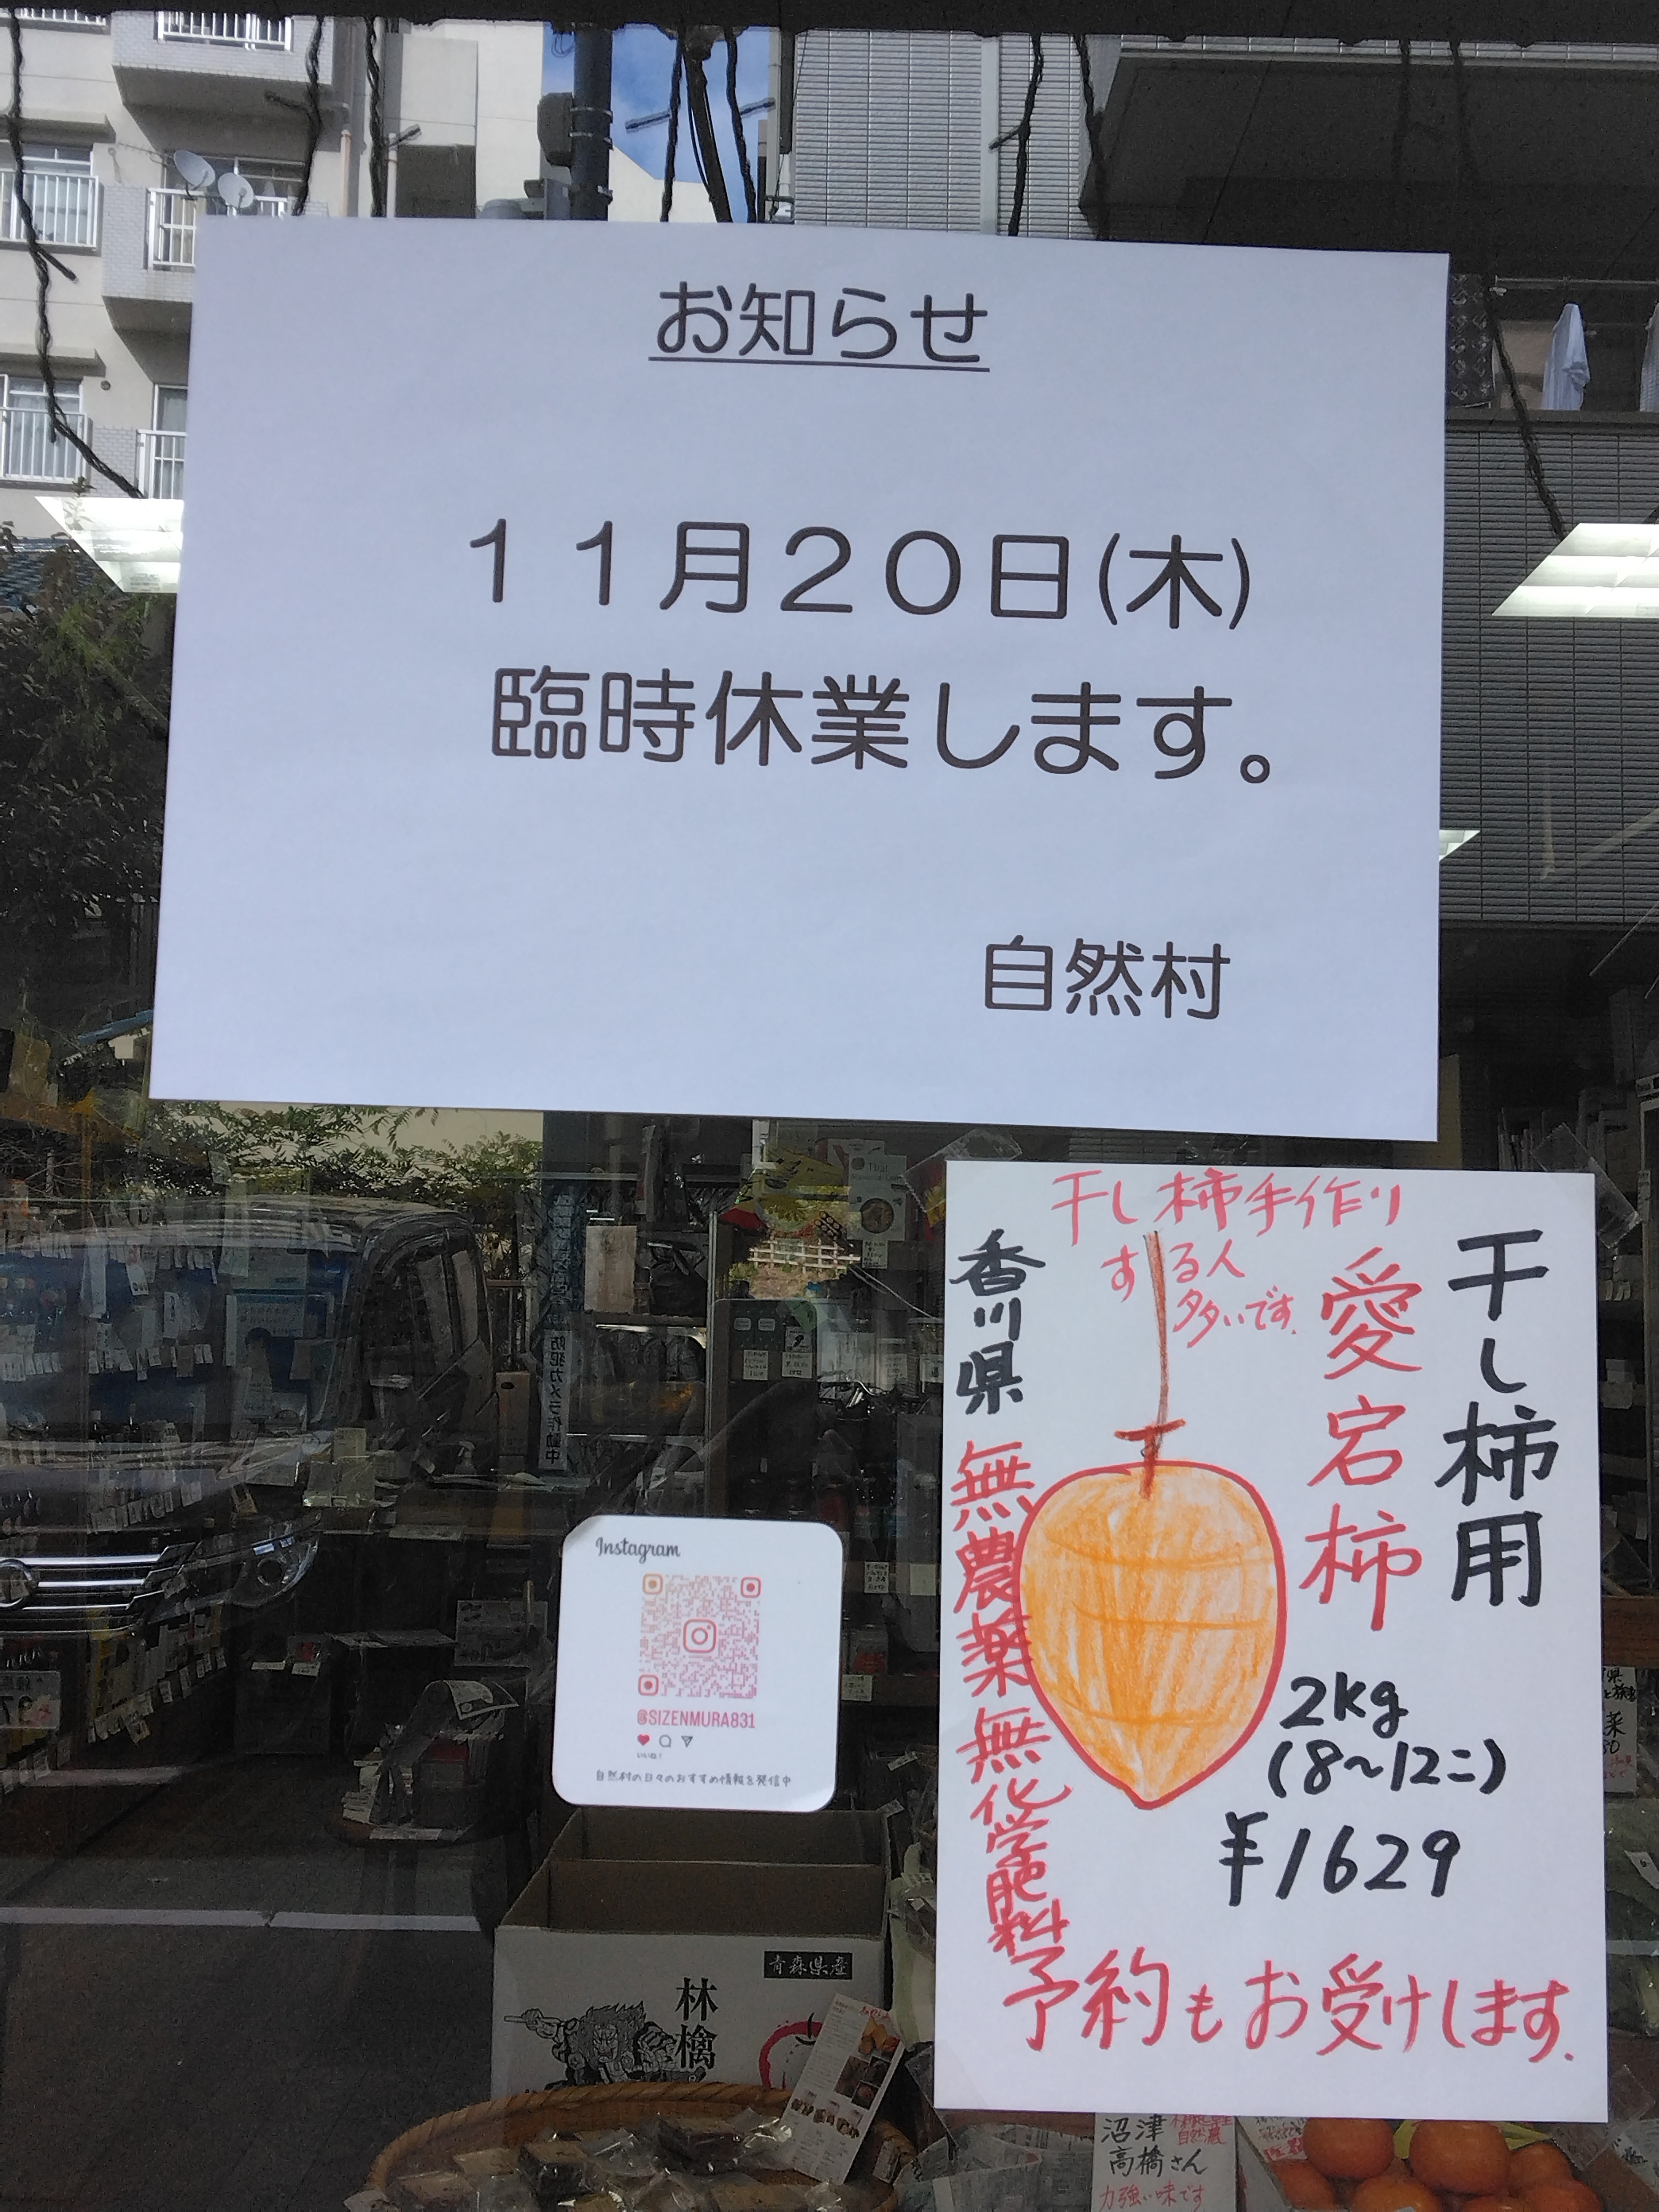 お知らせ
11月20日(木)
臨時休業します。
自然村
干し柿手作り
する人
多いです.
干し柿用
愛宕柿
香川県
無農薬 無化学肥料
2kg
(8~12こ)
¥1629
予約もお受けします.
Instagram
@SIZENMURA831
いいね!
自然村の日々のおすすめ情報を発信中
防犯カメラ作動中
青森県産
林檎。
沼津
高橋さん
力強い味です